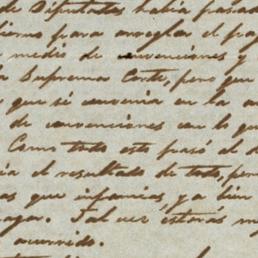 de Diputados habia pasad
bierno para arreglar el pag
medio de convenciones y
a Suprema Corte, pero que
y que si convenia en la
de convenciones con lo qu
Como todo esto pasó el d
ia el resultado de todo, per
as que infamias, ya bien
agar. Tal vez estarás m
ocurrido.